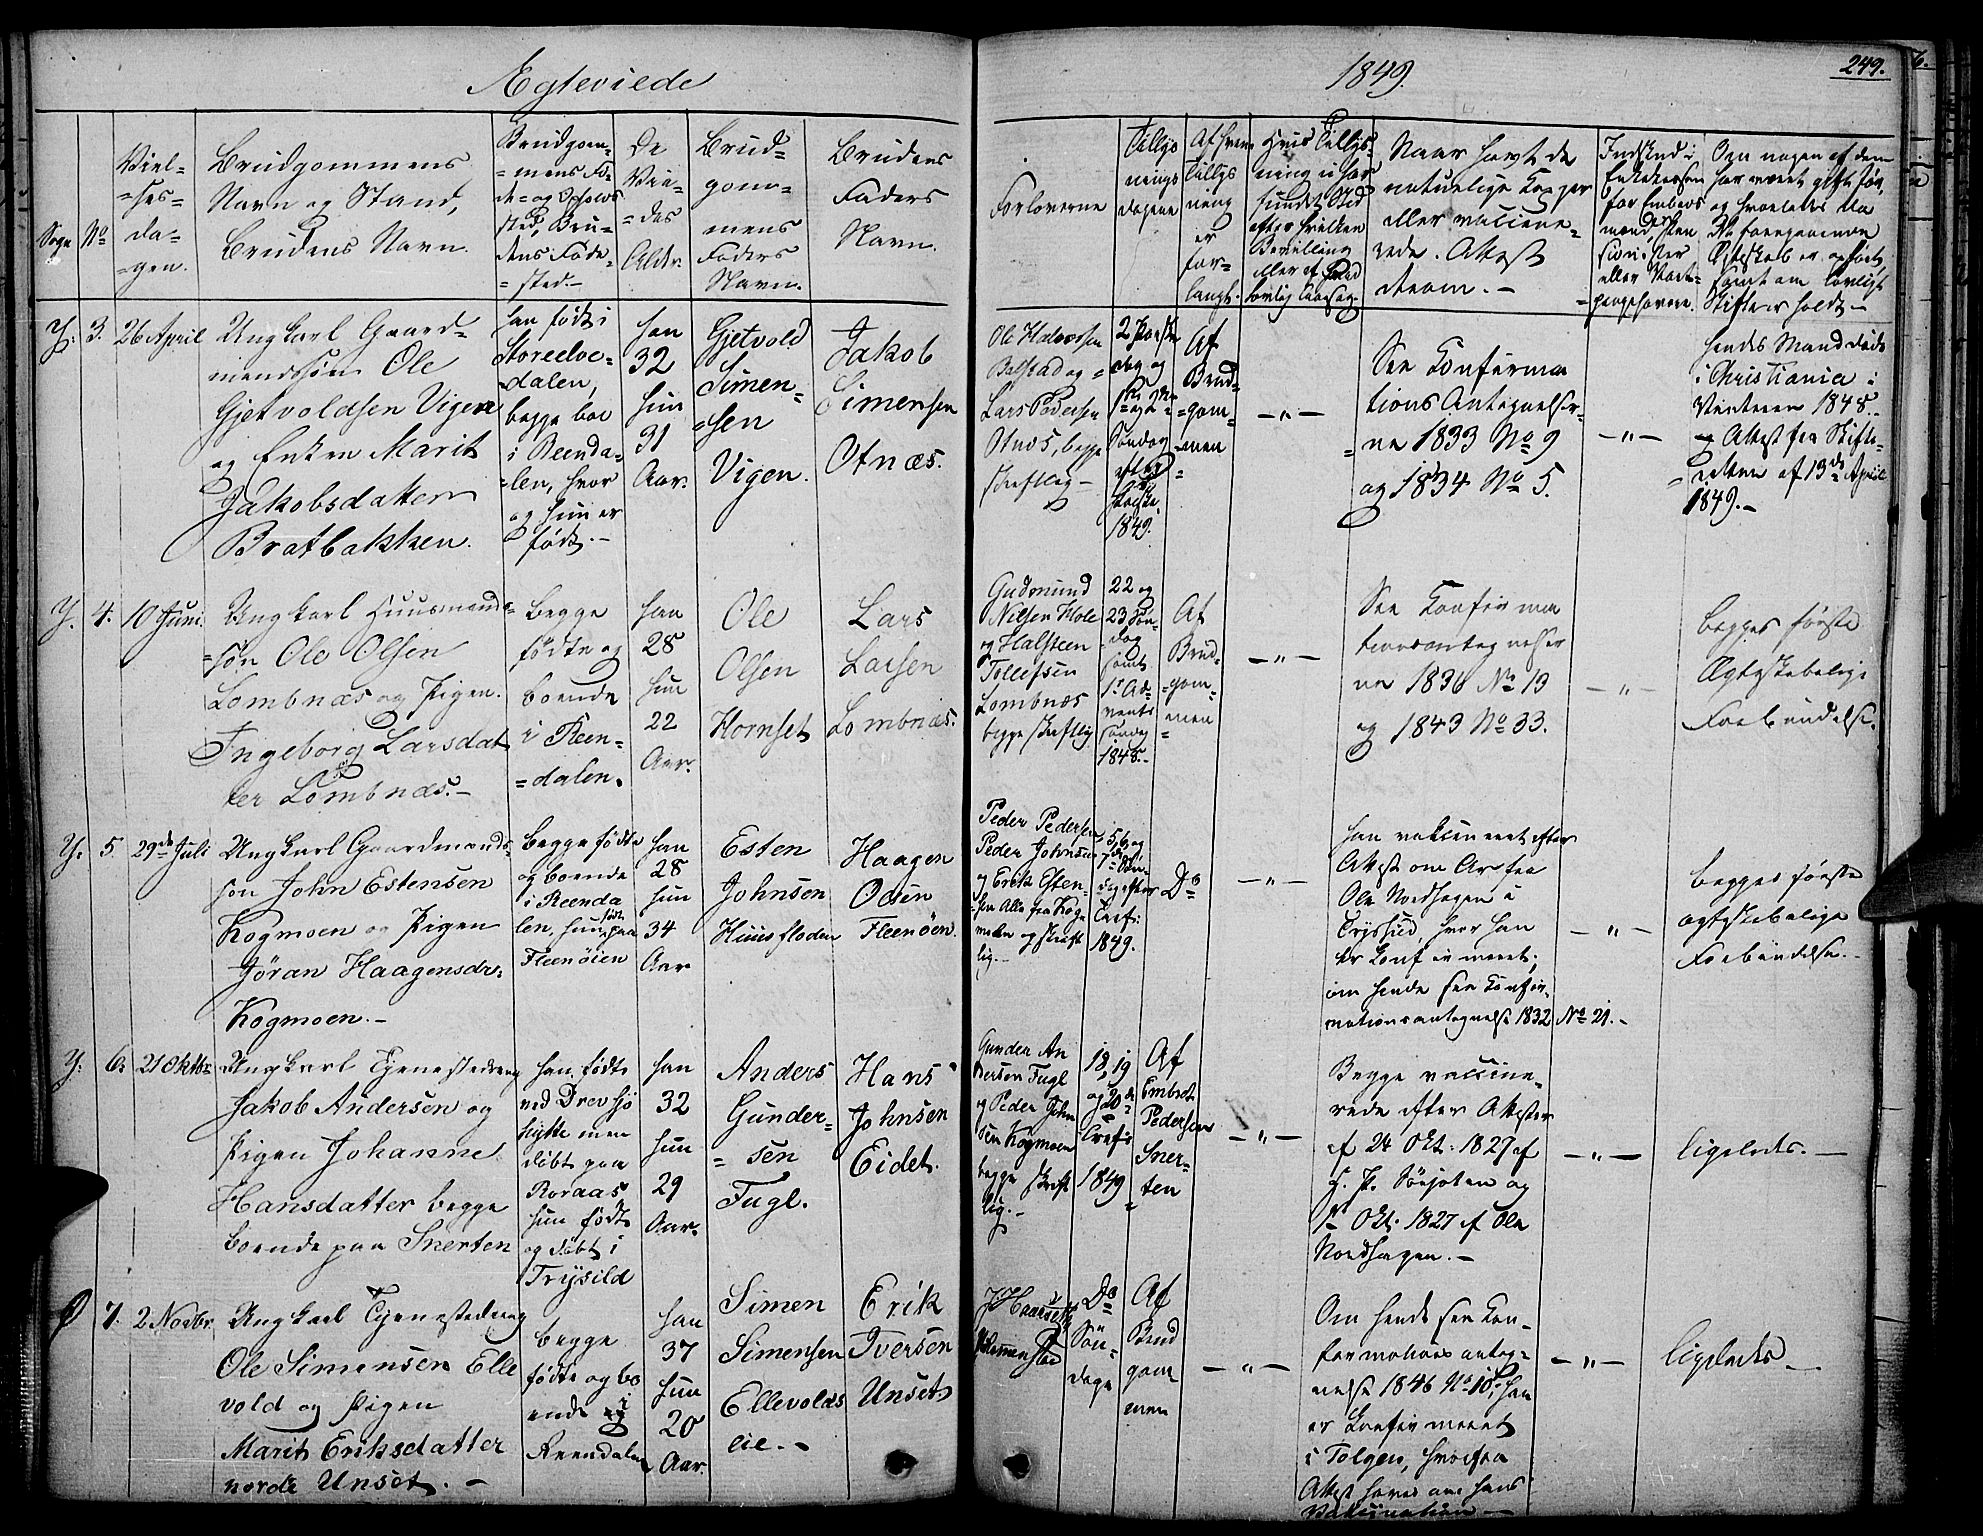 Egteviede
1849.
249.
Sogn
No
Viel-
=ses-
da-
=gen.
Brudgommens
Navn og Stand,
Brudens Navn.
Brudgom-
=mens Fø-
de= og Opholds
sted, Bru-
dens Føde-
=sted.-
De
Vie-
=des
Alder.
Brud=
gom=
mens
Faders
Navn.
Brudens
Faders
Navn.
Forloverne
Tillys
nings
dagene
Af hvem
Tillys
ning
er
for-
langt.
Hvis Tillys-
ning ei har
fundet Sted
efter hvilken
Bevilling
eller af hvad
lovlig Aarsag.
Naar havt de
naturlige Kopper
eller vaccine-
rede. Attest
derom.-
Indskud i
Enkekassen
for Embeds
mænd,
eller
Om nogen af dem
har været gift før,
og hvorledes da
det foregaaende
Ægteskab er ophørt,
samt om lovligt
Skifte er holdt-
Y. 3. 26 April
Ungkarl Gaard-
mandssøn Ole
Gjetvoldsen Vigen
og Enken Marit
Jakobsdatter
Bratbakken.
han født i
Storelve-
=dalen,
begge boe
i Reenda-
=len, hvor
og hun er
født.-
han
32
hun
31
Aar.
Gjetvold
Simen-
=sen
Vigen.
Jakob
Simensen
Otnæs.
Ole Halvorsen
Bolstad og
Lars Pedersen
Otnæs, begge
skriftlig-
2 Paaske
dag og
Søndag
efter
Paaske.
1849.
Af
Brud=
=gom-
=men
-"-
See Konfirma
tions Antegnelser-
=ne 1833 No 9
og 1834 No 5.
-"-
hendes Mand døde
i Christiania i
Vinteren 1848.
og Attest fra Skifte-
=retten af 13de April
1849.-
Y. 4. 10 Juni.
Ungkarl Huusmands-
=søn Ole Olsen
Lombnæs og Pigen
Ingeborg Larsdat
ter Lombnæs.-
begge
fødte og
boende
i Reen=
=dalen.
han
28
hun
22
Aar.
Ole
Olsen
Hornset
Lars
Larsen
Lombnæs.
Gudmund
Nilsen Hole
og Halsteen
Tollefsen
Lombnæs
begge skriftlig
22 og
23 Søn-
dag
samt
1ste Ad-
vents
søndag
1848.-
Af
Brud-
=gom-
men
-"-
See Konfirma
tionsantegnelser
ne 1836 No 13
og 1843 No 33.
-"-
begges første
Ægteskabelige
Forbindelse.
Y. 5. 29de Juli
Ungkarl Gaardmands-
søn John Estensen
Kogmoen og Pigen
Jøran Haagensdr-
Kogmoen.-
begge fødte
og boende
i Reenda
len, hun født paa
Fleenøien
han
28
hun
34
Aar
Esten
Johnsen
Huusfloden
Haagen
Oden
Fleenøen.
Peder Pedersen
Peder Johnsen
og Erik Esten-
sen Alle fra Kog-
moen og skrift
lig.-
5, 6 og
7de Søn-
dag efter
Tref:
1849.
Do
-"-
han vaksineret efter
Attest om Ar fra
Ole Nordhagen i
Trysild, hvor han
er konfirmeret;
om hende see Konfir-
mationsantegnelse 1832 No 21.-
-"-
begges første
ægteskabelige
Forbindelse.-
Y. 6. 21 Oktbr
Ungkarl Tjenestedreng
Jakob Andersen og
Pigen Johanne
Hansdatter begge
boende paa Snerten
han født
ved Drevsjø
hytte men
døbt paa
Roraas
hun født
og døbt i
Trysild
han
32
hun
29
Aar.
Anders
Gunder-
=sen
Fugl.
Hans
Johnsen
Eidet.
Gunder An
dersen Fugl
og Peder John
sen Kogmoen
begge skrift
lig.-
18, 19
og 20de
Trefs
1849
Af
Embret
Pedersen
Sner-
ten
-"-
Begge vaccine-
rede efter Attester
af 24 Okt: 1827 af
og
1ste Okt. 1827 af Ole
Nordhagen.-
-"-
ligeledes.-
7. 2 Novbr.
Ungkarl Tjenestedreng
Ole Simensen Elle
vold og Pigen
Marit Eriksdatter
nordre Unset.-
begge
fødte og bo
ende i
Reendalen
han
37
hun
20
Aar.
Simen
Simensen
Ellevolds
eie.-
Erik
Iversen
Unset
Do
Søn-
dage
Af
Brud
gom
men
-"-
Om hende see Kon-
firmations anteg-
nelse 1846 No 10, han
er konfirmeret
i Tolgen, hvorfra
Attest haves om hans
Vaksination-
-"-
ligeledes-